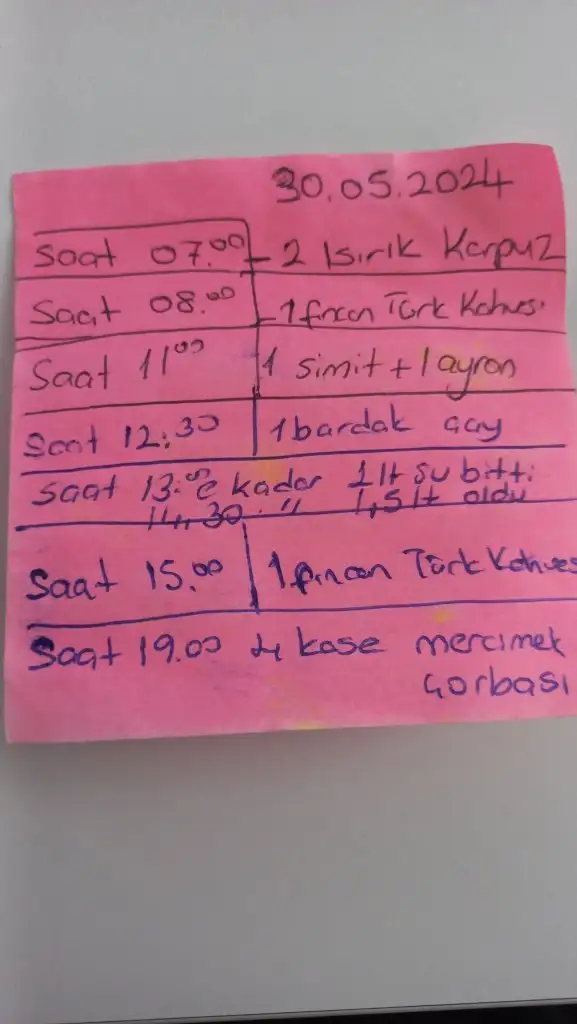 30.05.2024
Saat 07.00 - 2 Isırık Karpuz
Saat 08.00 - 1 fincan Türk Kahvesi
Saat 11 00 1 simit + 1 ayran
Saat 12:30 1 bardak çay
Saat 13:00 e kadar 1 lt su bitti
30 " 1,5 lt oldu
Saat 15.00 1 fincan Türk Kahves
Saat 19.00 kase mercimek
çorbası